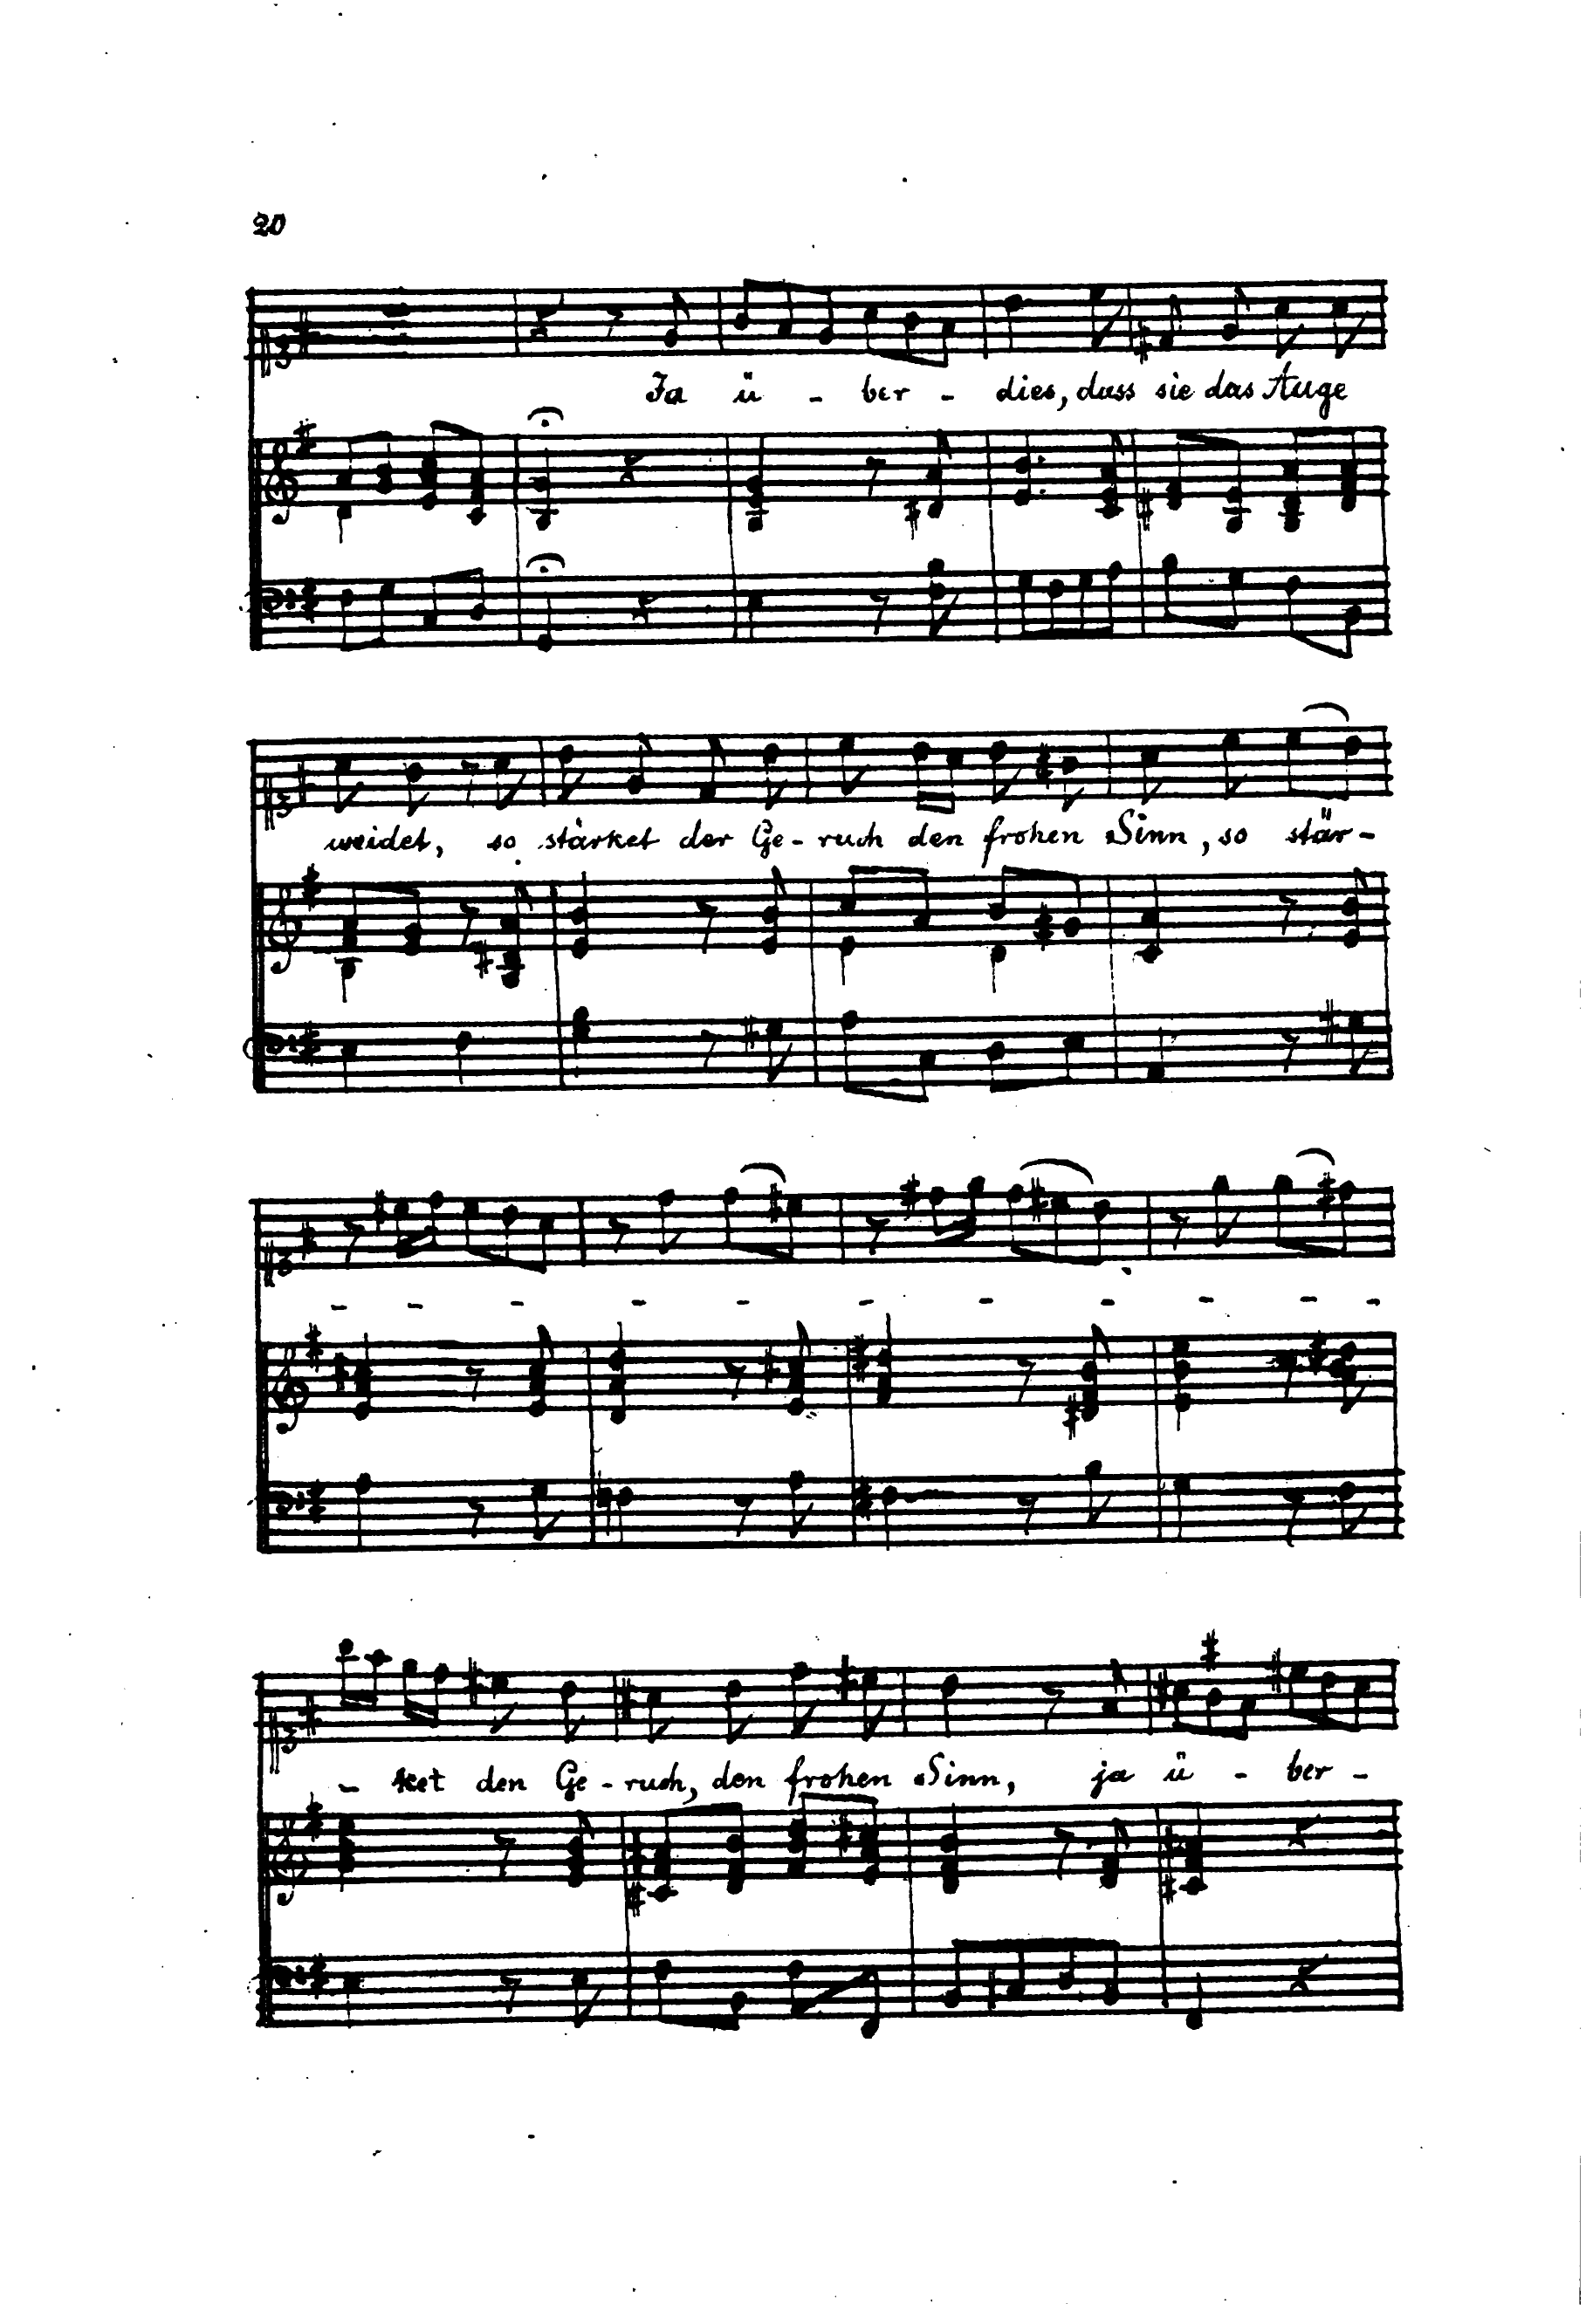 20
Ja ü - ber - dies, dass sie das Auge
weidet, so stärket der Ge - ruch den frohen Sinn, so stär -
- - - - - - - - - - -
- ket den Ge - ruch, den frohen Sinn, ja ü - ber -